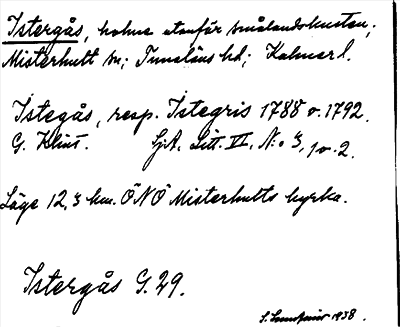 Istergås, holme utanför smålandskusten;
Misterhult sn; Tunaläns hd; Kalmar l.
Istegås, resp. Istegris 1788 o. 1792.
G. Klint. SjA. Litt. VI, N:o 3, 1 o. 2.
Läge 12,3 km. ÖNÖ Misterhults kyrka.
Istergås G. 29.
S. 1938.